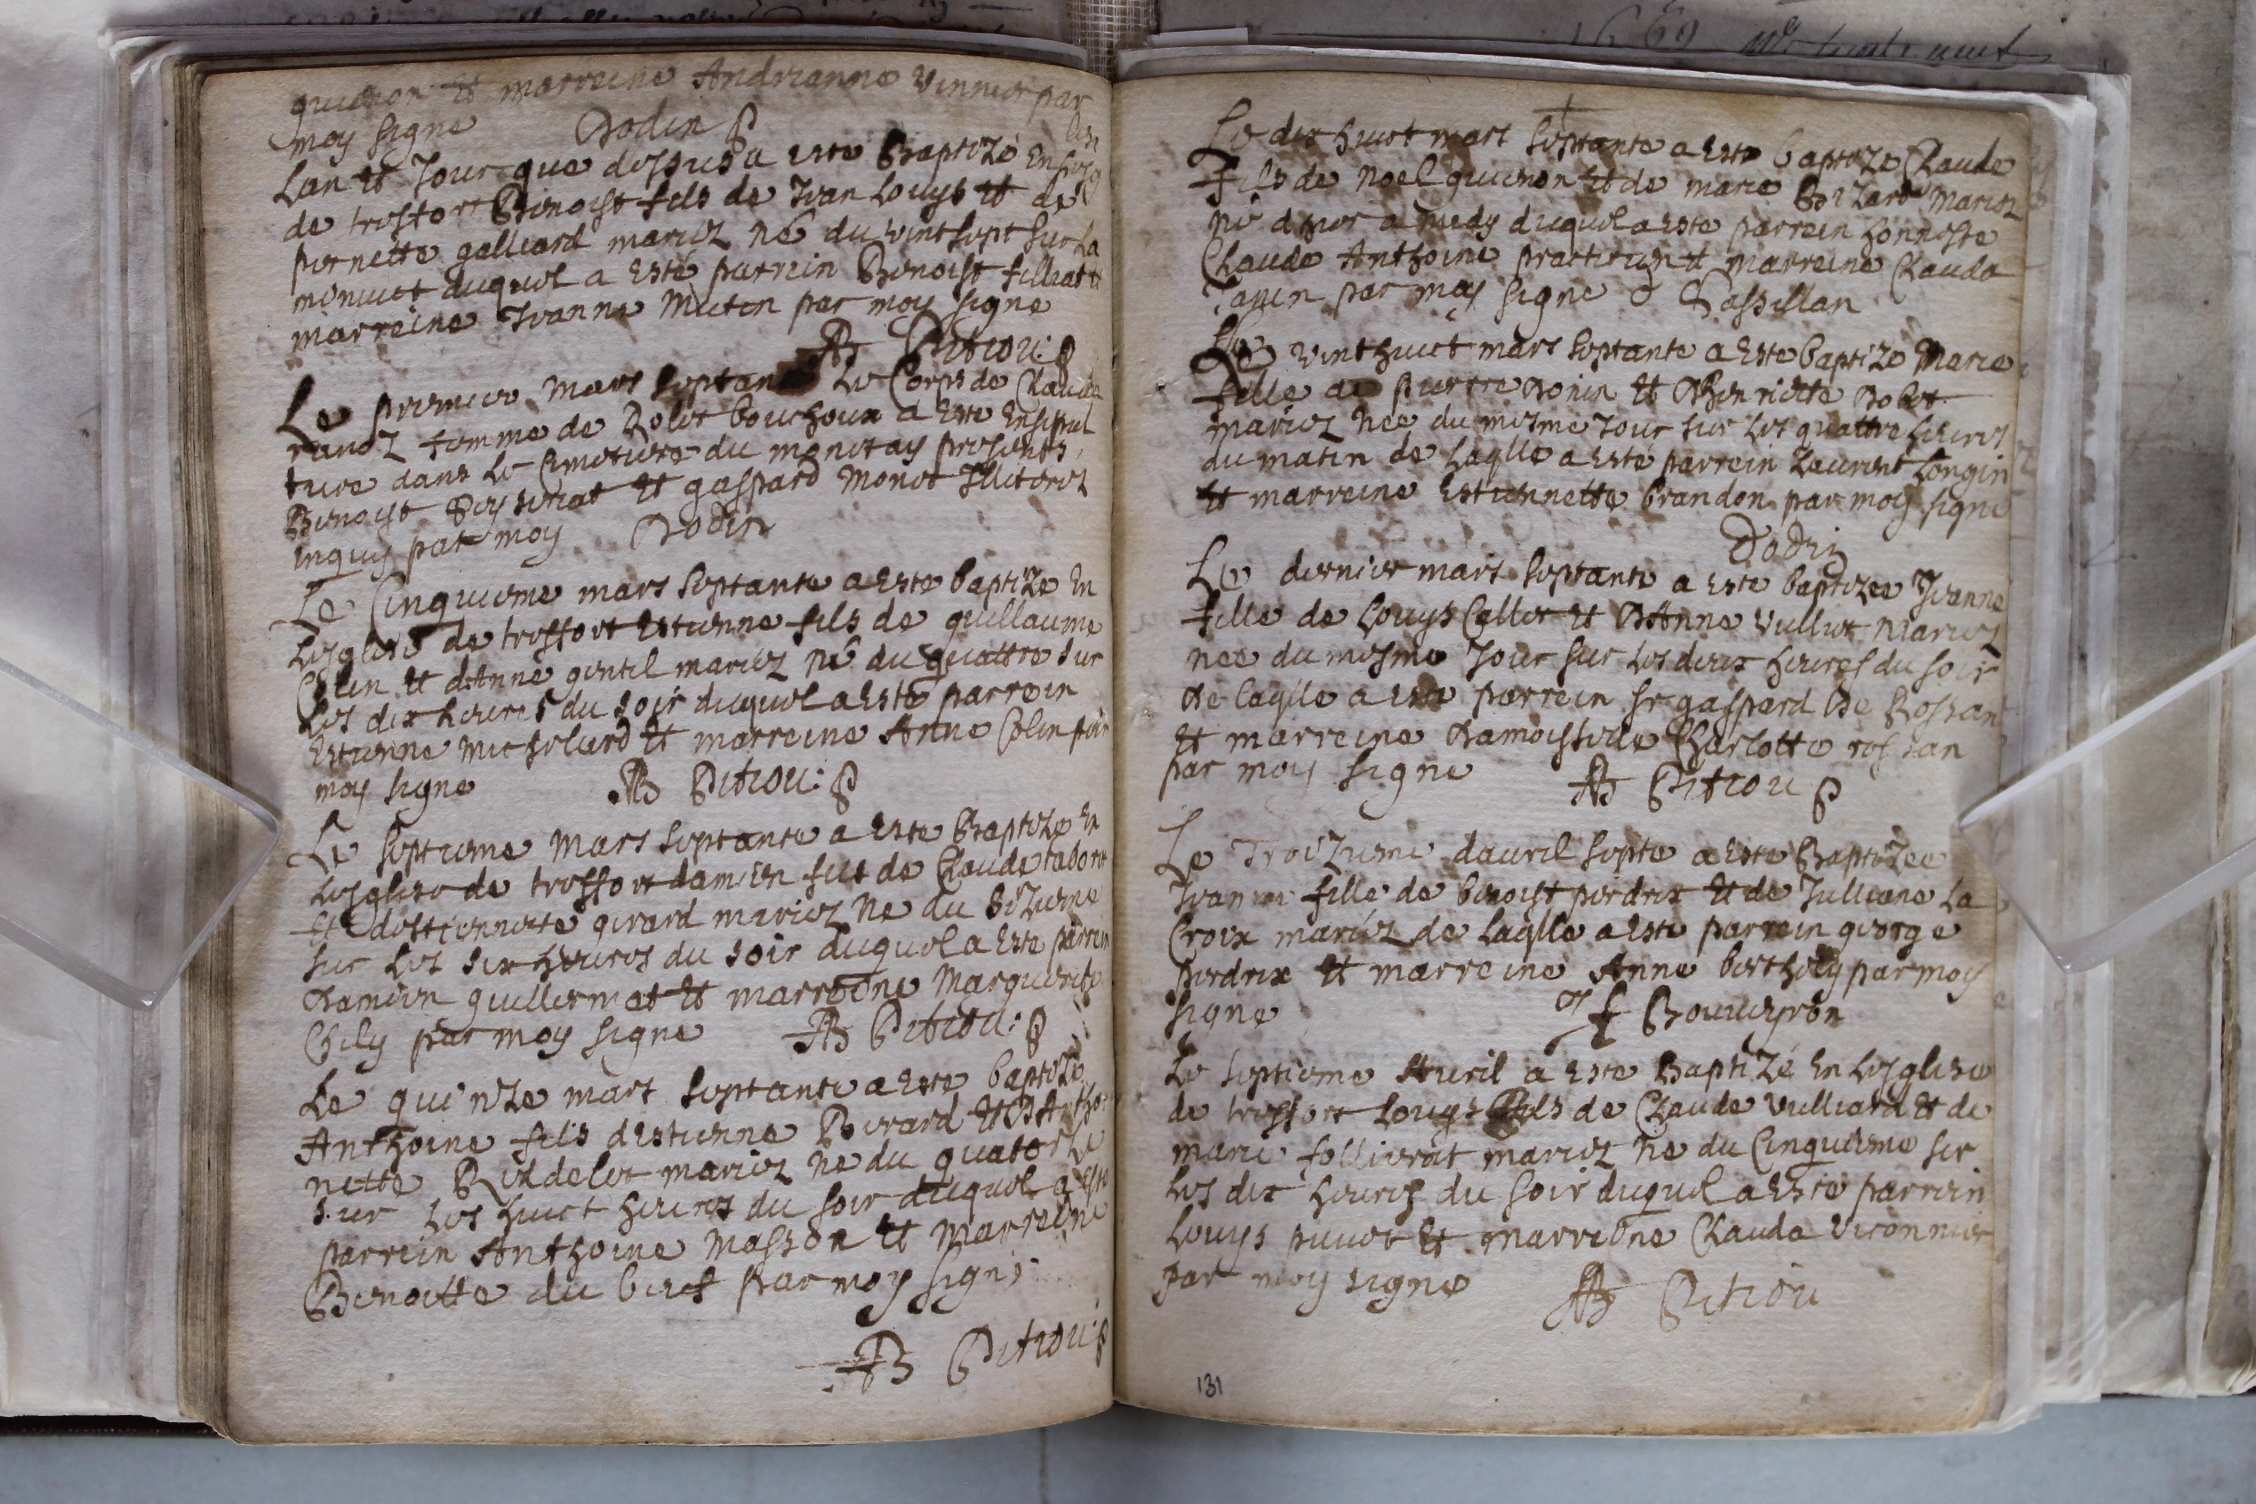 1669
quienon et marreine Andrianne Vinnier par
moy signe Dodin
Lan et Jour que dessus a este Baptizé En
de tresfort Benoist fils de Jean Louys et de
pernette galliard mariez né du vint sept sur La
minuict duquel a esté parrein Benoist filliat et
marreine Jeanne Mutin par moy signe
AB Pitiou
Le premier Mars septante Le Corps de Claude
femme de Rolet bouchoux a este Ensepul
ture dans Le Cimetiere du monetay presents,
Benoist et gaspard Monet Illiterez
inquis par moy Dodin
Le Cinquieme mars septante a este baptize En
Lesglise de tresfort Estienne fils de guillaume
Colin et dAnne gentil mariez né du quattre sur
Les dix heures du soir duquel a este parrein
Estienne Michelard et marreine Anne Colin par
moy signe AB Pitiou
Le septieme Mars septante a este Baptize En
Lesglise de tresfort damien fils de Claude taboret
Et destiennette girard mariez ne du sizieme
sur Les six heures du soir duquel a este parrein
Damien guillermet et marreine Marguerite
Chily par moy signe AB Pitiou
Le quinze mars septante a este baptizé
Anthoine fils destienne Berard et dAntho
nette mariez ne du quatorze
sur Les huict heures du soir duquel a este
parrein Anthoine Masson et Marreine
Benoitte du biet par moy signe
AB Pitiou
Le dix huict mars septante a este baptize Claude
fils de Noel quienon et de marie Bizard Mariez
né duquel a este parrein honneste
Claude Anthoine practicien et marreine Clauda
par moy signe Cassillan
Le vint huict mars septante a este baptize Marie
fille de pierre Donin et dhenriette Dobet
mariez née du mesme Jour sur Les quattre heures
du matin de Laqlle a este parrein Laurent Longin
et marreine Estiennette brandon par moy signe
Dodin
Le dernier mars septante a este baptizee Jeanne
fille de Louys Callet et dAnne Vulliet Mariez
née du mesme Jour sur Les deux heures du soir
De laqlle a este parrein sr gaspard De Rossan
et marreine Damoiselle Charlotte rossan
par moy signe AB Pitiou
Le Troizieme dauril septe a este Baptizee
Jeanne fille de benoist perdrix et de Julliane La
Croix mariez de Laqlle a este parrein george
perdrix et marreine Anne bertholy par moy
signe
Le septieme Auril a este Baptizé En Lesglise
de tresfort Louys fils de Claude Vulliard et de
marie follierat mariez ne du Cinquieme sur
Les dix heures du soir duquel a este parrein
Louys et marreine Clauda Viconnier
par moy signe AB Pitiou
131